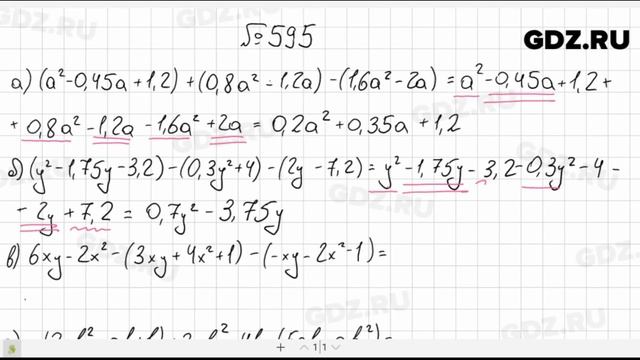 №595
GDZ.RU
а) (a²-0,45a+1,2)+(0,8a²-1,2a)-(1,6a²-2a)=a²-0,45a+1,2+
+0,8a²-1,2a-1,6a²+2a=0,2a²+0,35a+1,2
б) (y²-1,75y-3,2)-(0,3y²+4)-(2y-7,2)=y²-1,75y-3,2-0,3y²-4-
-2y+7,2=0,7y²-3,75y
в) 6xy-2x²-(3xy+4x²+1)-(-xy-2x²-1)=
1|1